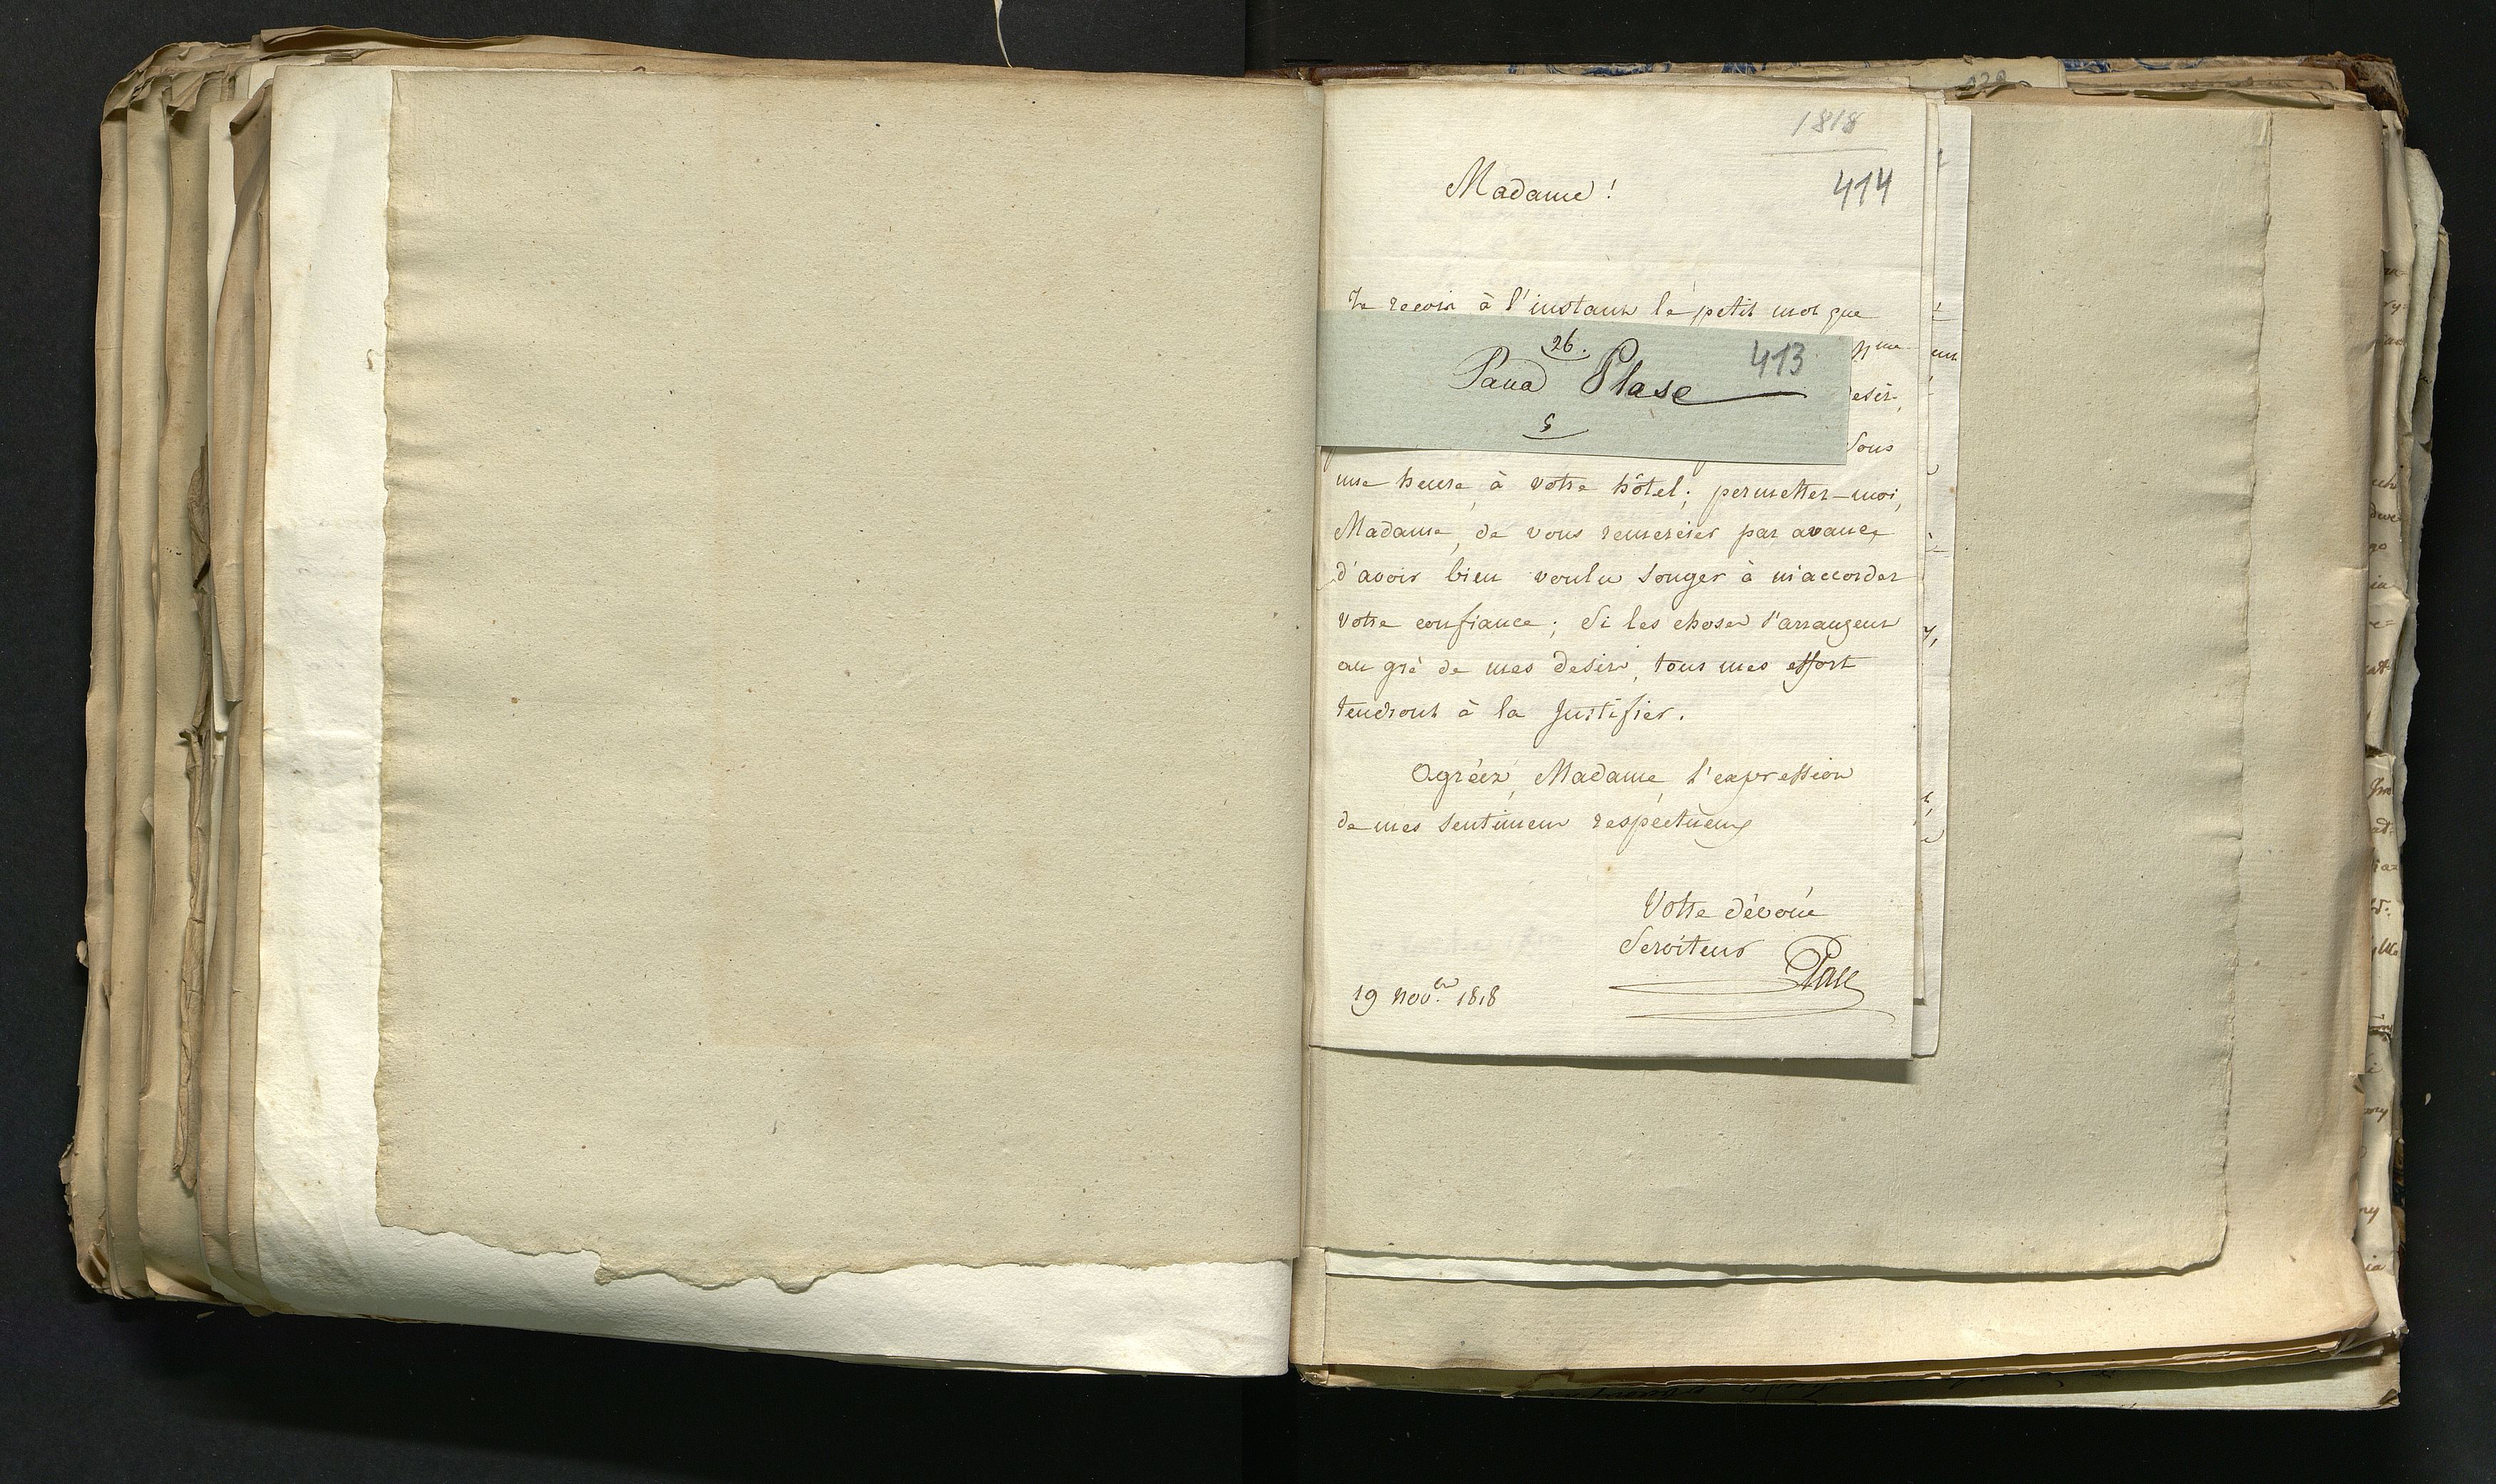 1818
414
Madame!
Je recois à l'instant le petit mot que
26.
413
Pana Plase
5
desir,
Vous
une heure à votre hôtel; permettez-moi,
Madame, de vous remercier par avance
d'avoir bien voulu songer à m'accorder
votre confiance; Si les choses s'arrangent
au gré de mes desirs, tous mes effort
tendront à la justifier.
Agréez, Madame, l'expression
de mes sentimens respectueux
Votre dévoué
Serviteur
19 nov.er 1818